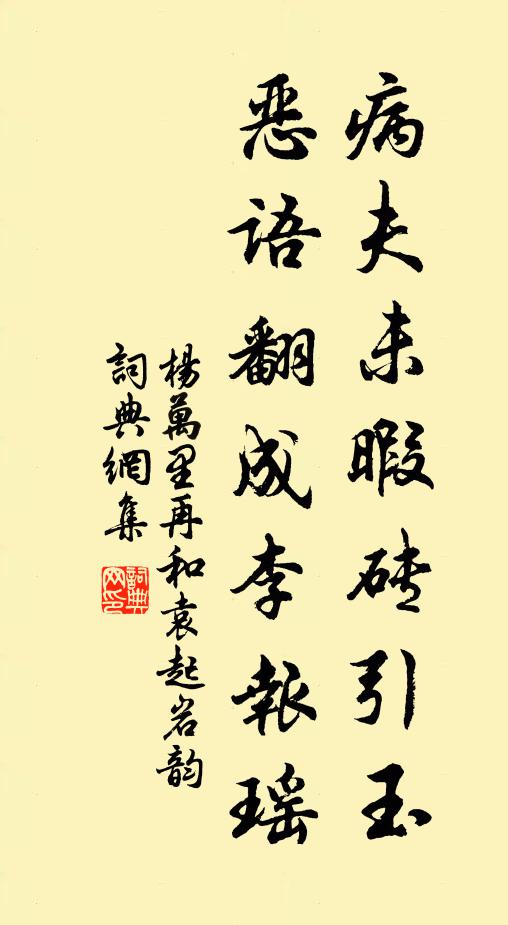 病夫未暇砖引玉
恶语翻成李報瑶
楊萬里再和袁起岩韵
詞典網集
詞典網印